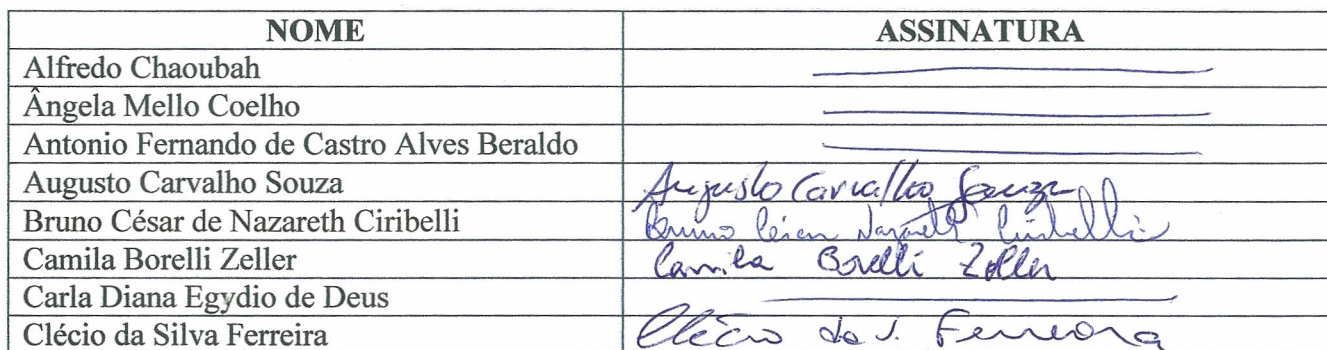 NOME ASSINATURA
Alfredo Chaoubah
Ângela Mello Coelho
Antonio Fernando de Castro Alves Beraldo
Augusto Carvalho Souza Augusto Carvalho Souza
Bruno César de Nazareth Ciribelli Bruno César Nazareth Ciribelli
Camila Borelli Zeller Camila Borelli Zeller
Carla Diana Egydio de Deus
Clécio da Silva Ferreira Clécio da S. Ferreira